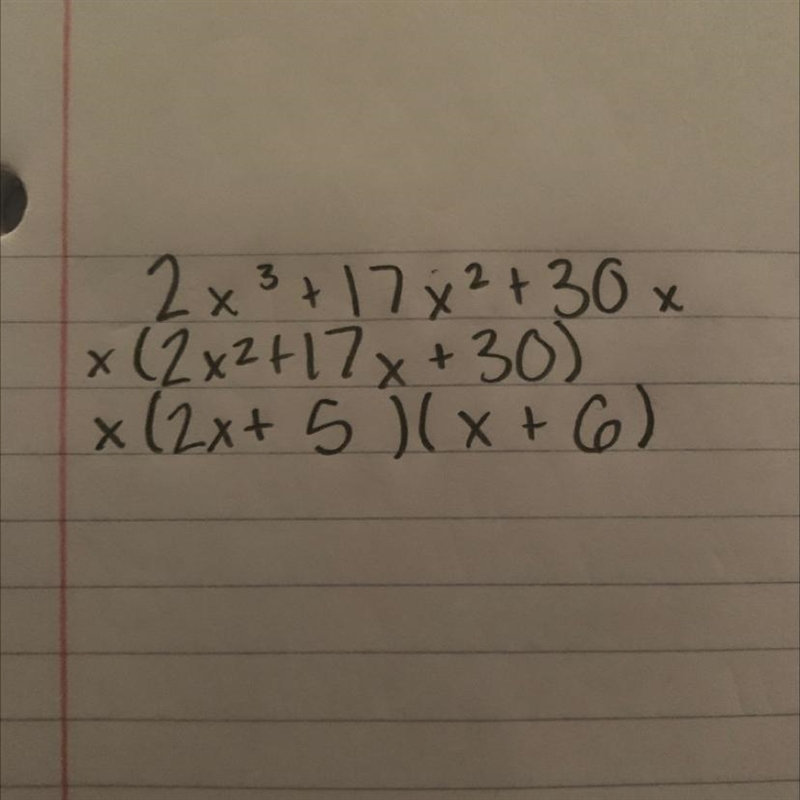 2x³+17x²+30x
x(2x²+17x+30)
x(2x+5)(x+6)